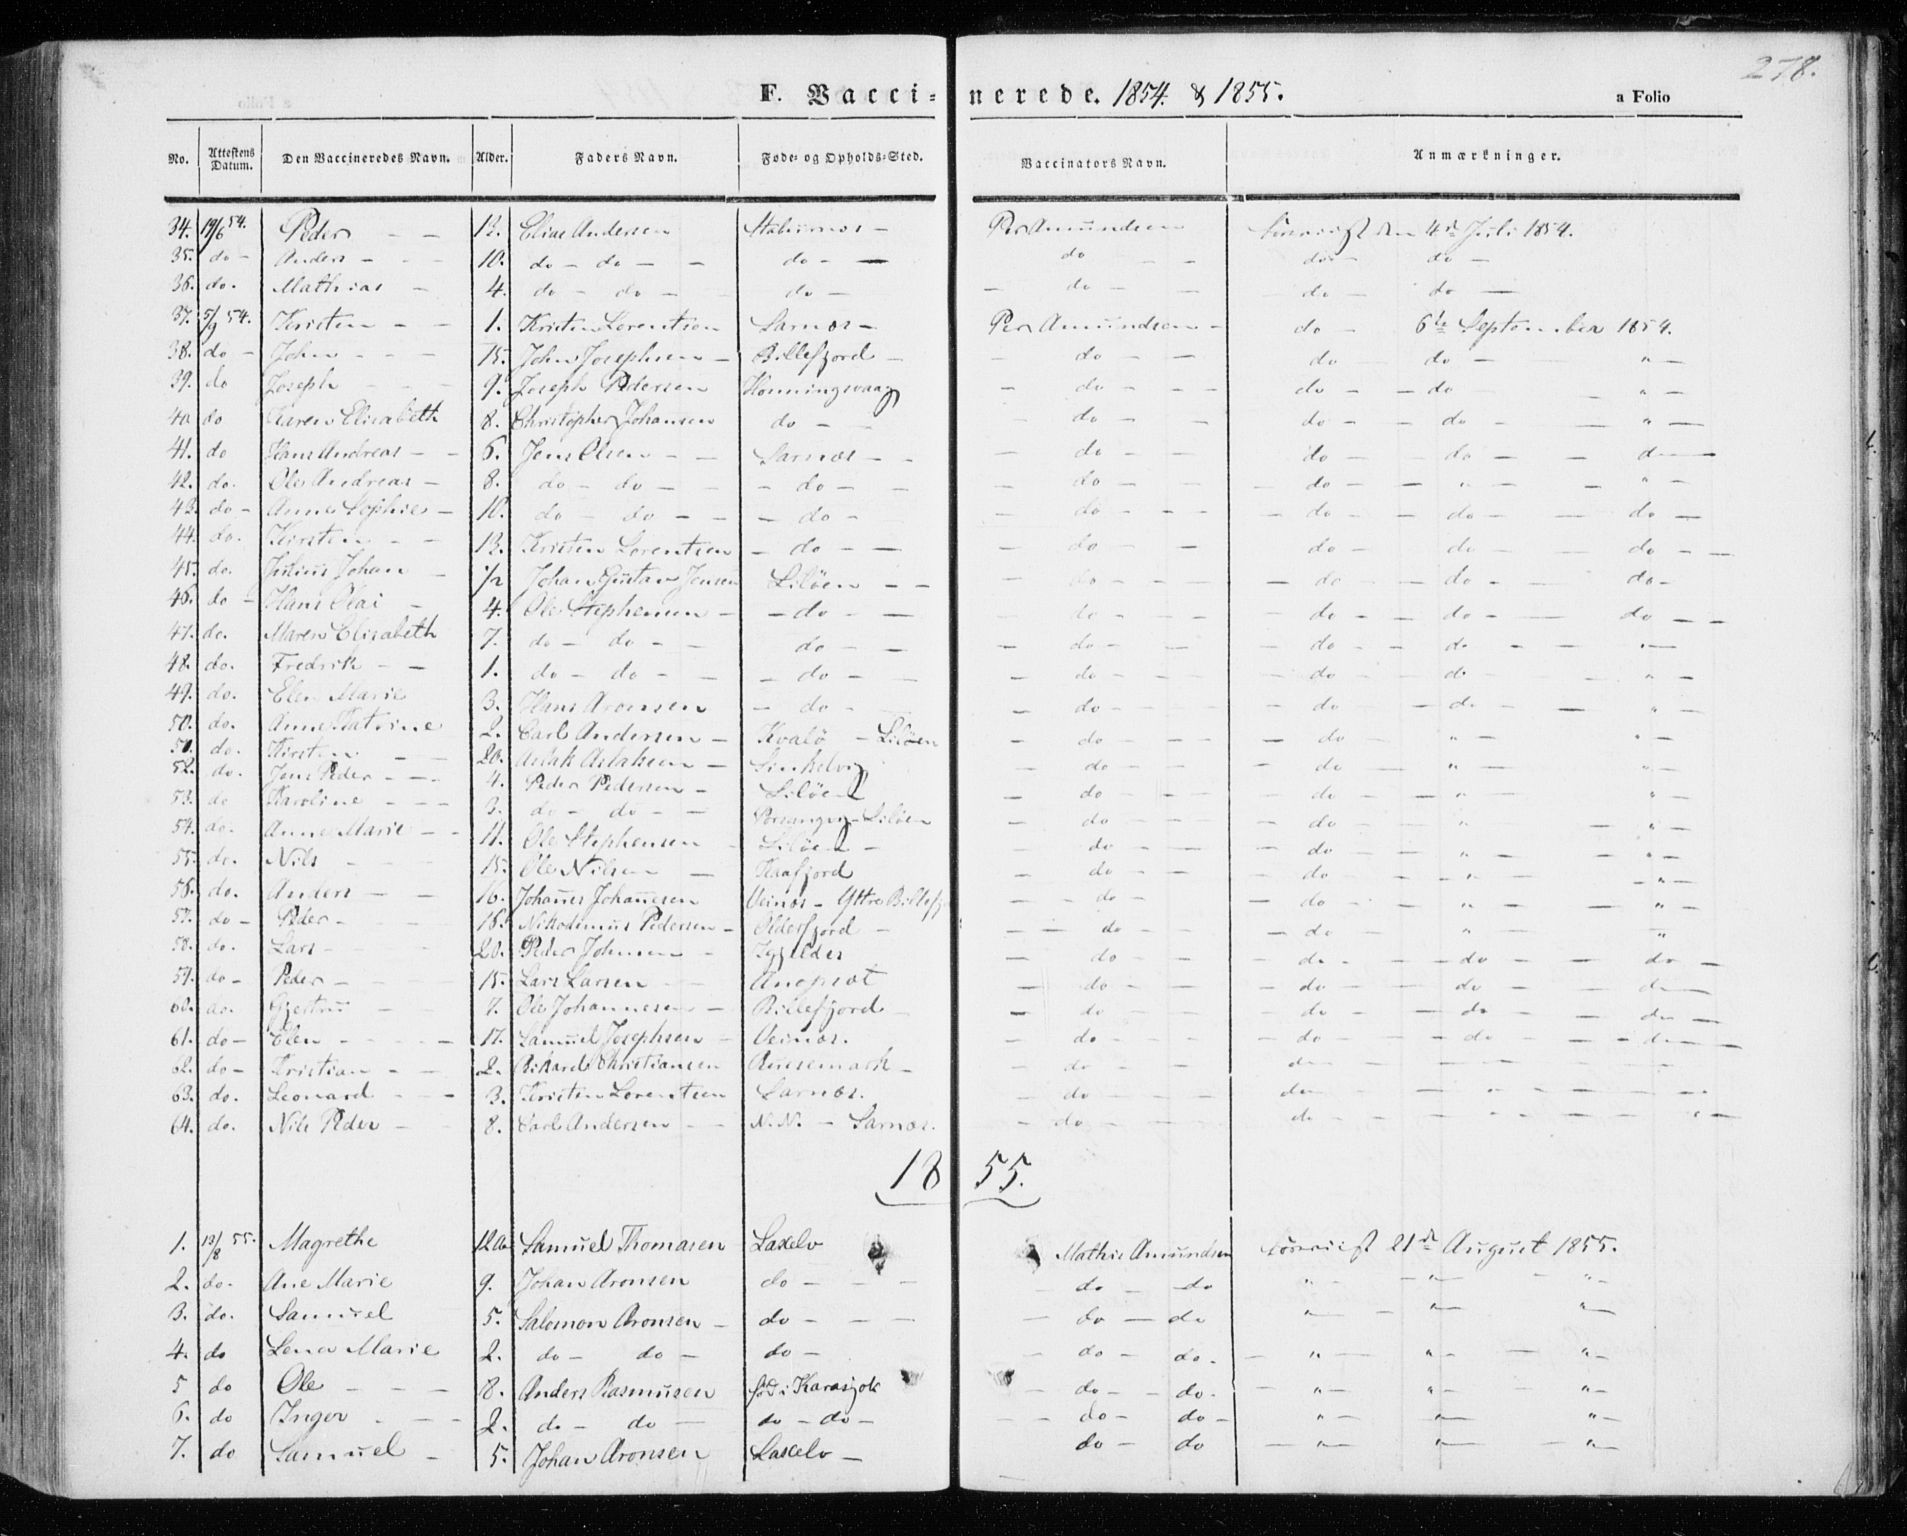 278.
F. Vaccinerede. 1854. & 1855. a Folio
No. Attestens Datum. Den Vaccineredes Navn. Alder. Faders Navn. Føde- og Opholds-Sted. Vaccinators Navn. Anmærkninger.
34. 19/6 54. Peder - - 12. Elias Andersen - Per Amundsen den 4de Juli 1854.
35. do - Anders - - 10. do - do - - do - - do - - do - do -
36. do. Mathias - 4. do - do - do - - do - - - do - do -
37. 5/9 54. Kristen - - 1. Kristen Lorentsen Sarnæs - Per Amundsen - do - 6te September 1854.
38. do - John - - - 15. John Josephsen - Billefjord - - do - - do do - " -
39. do Joseph - - - 9. Joseph Pedersen Honningsvaag - do - - - do - - do - " -
40 do Karen Elisabeth 8. Christopher Johansen do - - do - - do - - do - - " -
41. do Hans Andreas - - 6. Jens Olsen - - Sarnæs - - - do - - do - - do - - d
42. do. Ole Andreas - 8. do - do - - - do - - - do - - - do - - " - - " -
43. do - Anne Sophie - 10. do - do - - - do - - do - - - - do - - do - - do -
44. do. Kirsten - - 12. Kristen Lorentsen - do - - - do - - do - do - - do - -
45. do. Julius Johan - 1/2 Johan Gustav Jensen Liløen - - - do - - - do - do - - do -
46. do - Hans Olai - 4. Ole Stephensen - - do - - - do - - - do - - do - - do - -
47. do. Maren Elisabeth 7. do - do - - do - - - do - - - do - - do - - " -
48. do. Fredrik - - 1. do - do - - - do - - - do - - - do - do - - " -
49. do. Elen Marie 3. Hans Aronsen - do - - - do - - - - do - - do - - " -
50. do. Anne Katrine 2. Carl Andersen - Kvalø - Liløen - do - - - do - " - - " -
51. do. Kirsten - - 20. Aslak Aslaksen - - do - - - do - " - " -
52. do. Jens Peder - - - 4. Peder Pedersen - Liløen - do - - - - do - - " - " -
53. do Karoline - - - 3. do - do - - Porsanger - Liløen - do - - - - do - " - " -
54. do. Anne Marie - - 11. Ole Stephensen - Liløen - - do - - - do - - " - - " -
55. do. Nils - - - 15. Ole Nilsen - Kaafjord - do - - - do - - " - - " -
56. do. Anders - - 16. Johannes Johannesen Veinæs - Yttre Billefj - - do - - do - - " - - " -
57. do - Peder - - - 16. Nikodimus Pedersen - Olderfjord - - - do - - - do - " - "
58. do. Lars - - - 20. Peder Johnsen - - do - - - do - - do - do -
59. do - Peder - - - 15. Lars Larsen - - - do - - - do - - do - d
60. do. Gjertru - - 7. Ole Johannesen - Billefjord - - do - - - do - - do - - do -
61. do - Elen - - - - 17. Samuel Josephsen - Veinæs. - do - - - do - - do - - d
62. do - Kristian - - 2. Rikard Christiansen - do - - do - - -
63. do. Leonard - - - 3. Kristen Lorentsen Sarnæs. - do - - - do - - " - - -
64. do. Nils Peder - - 8. Carl Andersen - - N. N. - Sarnæs. - do - - do - - - " -
1855.
1. 13/8 55. Magrethe 12 Samuel Thomasen Laxelv Mathis Amundsen 21de August 1855.
2. do. Ane Marie 9. Johan Aronsen do - - - - do - do " - - " - - " -
3. do. Samuel 5. Salomon Aronsen - do - - - - do - do " - - " - " -
4. do Lena Marie 2. do - do - do - - do - do. - " - " - - " -
5 do Ole - - - 8. Anders Rasmusen fød i Karasjok - do - - do. - " - " - - " -
6. do Inger - - - 2. do - do - do - do - - do - do - " - " - " -
7. do Samuel - 5. Johan Aronsen Laxelv - do - do - " - " - - " -